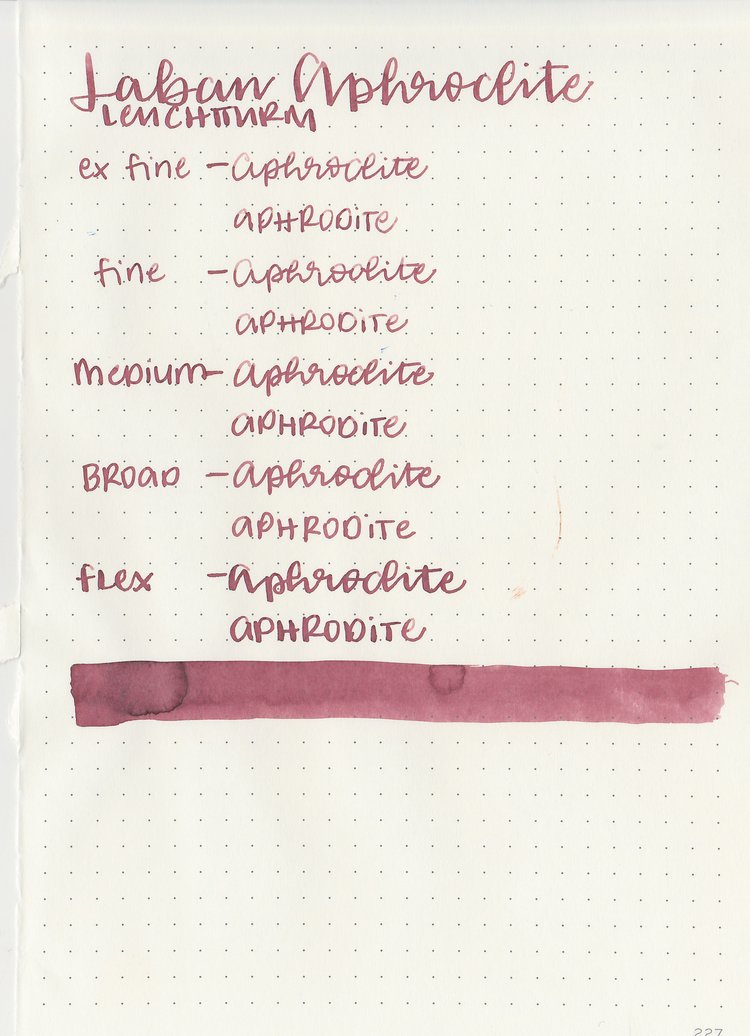 Laban Aphrodite
LEUCHTTURM
ex fine - Aphrodite
APHRODiTe
fine - Aphrodite
APHRODiTe
Medium - Aphrodite
APHRODiTe
BROAD - Aphrodite
APHRODiTe
flex - Aphrodite
APHRODiTe
227